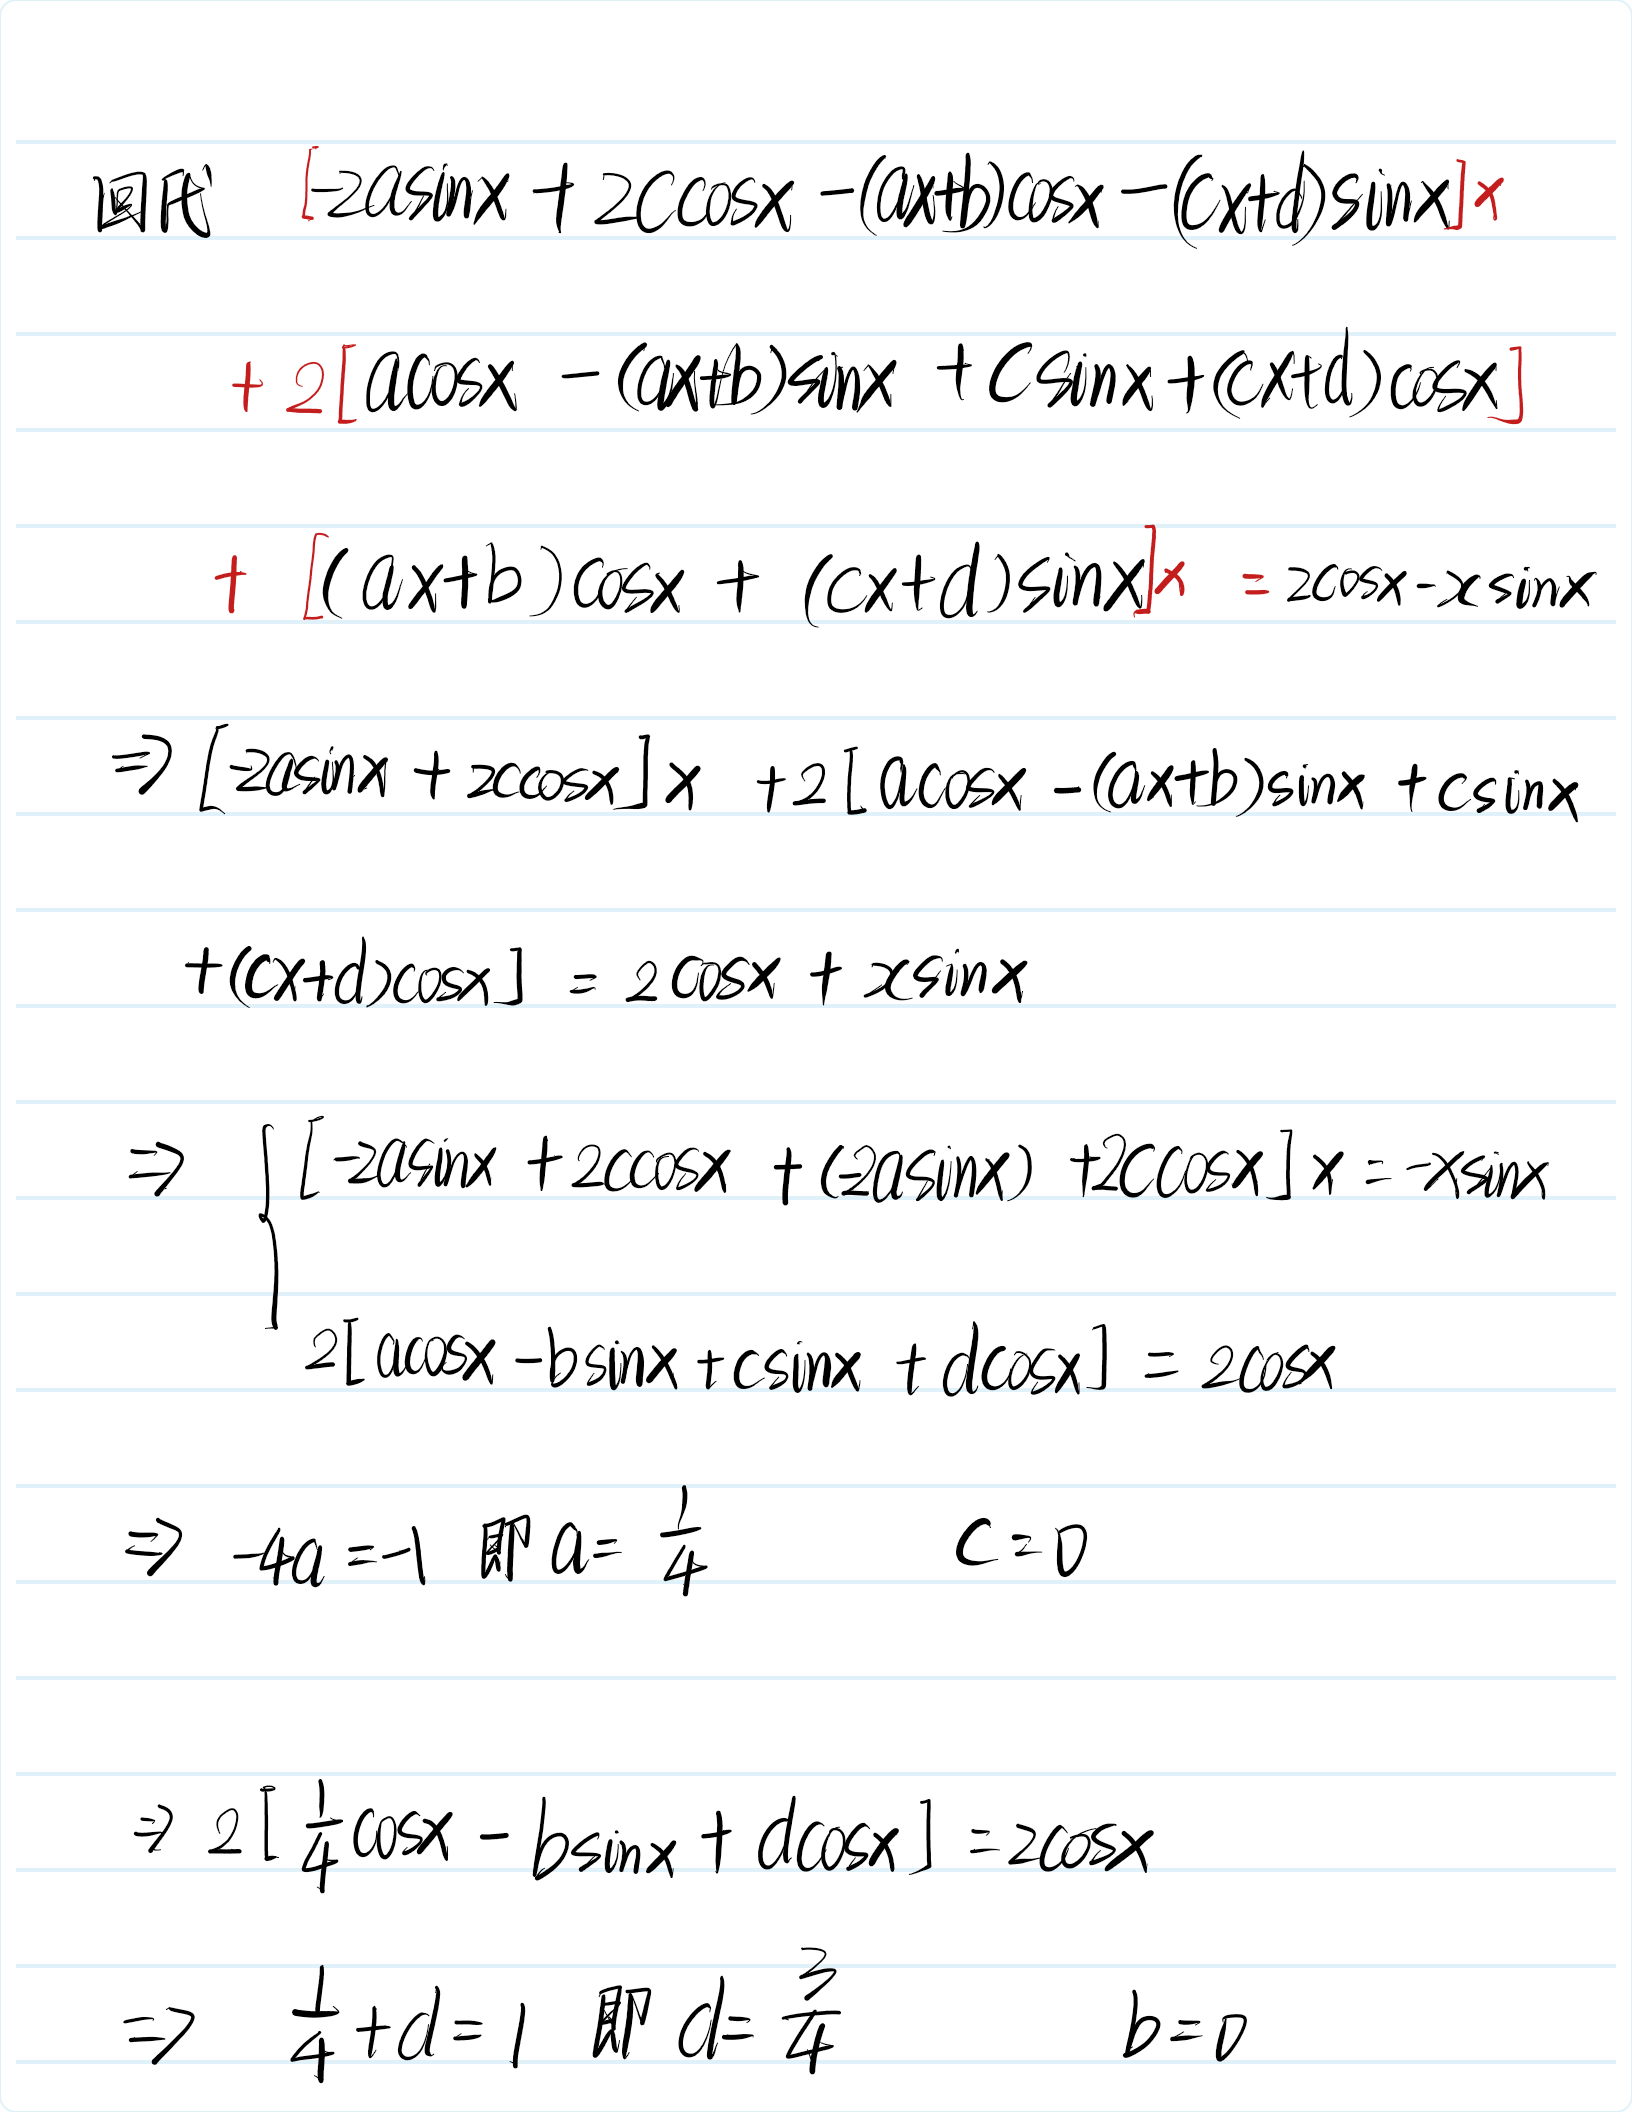 回代 [-2asinx + 2ccosx -(ax+b)cosx -(cx+d)sinx]x
+ 2[acosx -(ax+b)sinx + csinx+(cx+d)cosx]
+ [(ax+b)cosx + (cx+d)sinx]x = 2cosx-xsinx
⇒ [-2asinx + 2ccosx]x +2[acosx -(ax+b)sinx + csinx
+(cx+d)cosx] = 2cosx + xsinx
⇒ { [-2asinx +2ccosx +(-2asinx) +2ccosx]x = -xsinx
2[acosx -bsinx+csinx + dcosx] = 2cosx
⇒ -4a=-1 即 a= 1/4 c=0
⇒ 2[1/4 cosx - bsinx + dcosx] =2cosx
⇒ 1/4 +d=1 即 d= 3/4 b=0